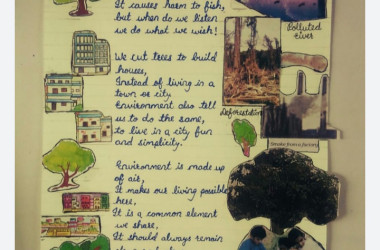 It causes harm to fish,
but when do we listen
we do what we wish!
Polluted
River
We cut trees to build
houses,
Instead of living in a
town or city.
Environment also tell
us to do the same,
to live in a city fun
and simplicity.
Deforestation
Smoke from a factory
Environment is made up
of air,
It makes our living possible
here,
It is a common element
we share,
It should always remain